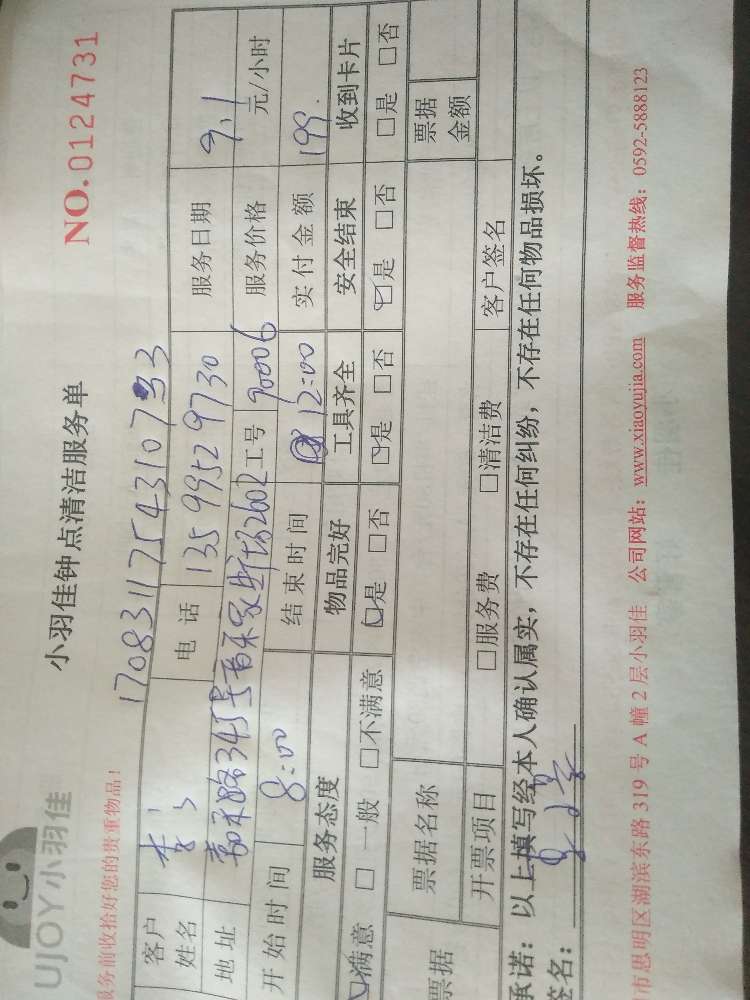 UJOY小羽佳
小羽佳钟点清洁服务单
NO.0124731
服务前收拾好您的贵重物品!
客户姓名 电话 13599529730 服务日期 9.1
地址 345号 2602 工号 90006 服务价格 元/小时
开始时间 8:00 结束时间 12:00 实付金额 199.
服务态度 物品完好 工具齐全 安全结束 收到卡片
☑满意 □一般 □不满意 ☑是 □否 ☑是 □否 ☑是 □否 □是 □否
票据 票据名称 票据金额
开票项目 □服务费 □清洁费 客户签名
承诺:以上填写经本人确认属实,不存在任何纠纷,不存在任何物品损坏。
签名:
市思明区湖滨东路319号A幢2层小羽佳 公司网站:www.xiaoyujia.com 服务监督热线:0592-5888123